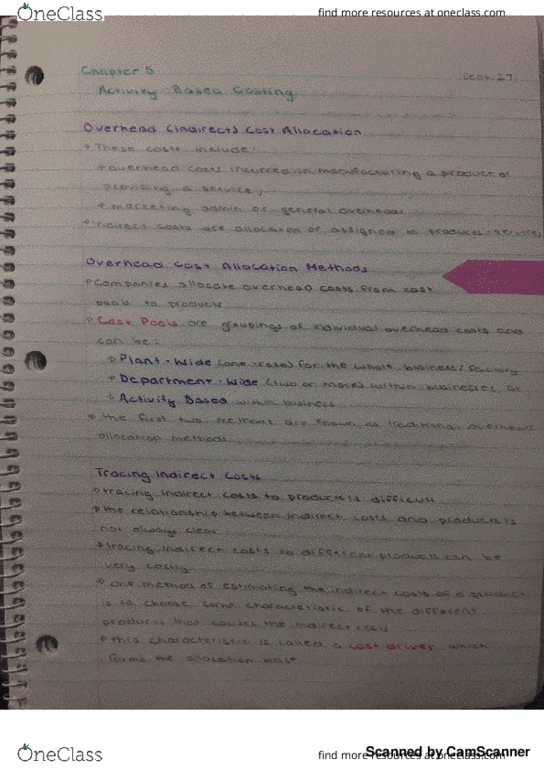 OneClass
find more resources at oneclass.com
Chapter 5
Sept. 27
Activity Based Costing
Overhead (indirect) Cost Allocation
These costs include:
overhead costs incurred in manufacturing a product or
providing a service,
marketing admin or general overheads
indirect costs are allocated or assigned to products + services
Overhead Cost Allocation Methods
Companies allocate overhead costs from cost
pools to products
Cost Pools are groupings of individual overhead costs and
can be:
Plant-Wide (one rate) for the whole business/factory
Department-Wide (two or more) within businesses, or
Activity Based within business
the first two methods are known as traditional overhead
allocation methods
Tracing Indirect Costs
tracing indirect costs to products is difficult
the relationship between indirect costs and products is
not always clear
tracing indirect costs to different products can be
very costly
one method of estimating the indirect costs of a product
is to choose some characteristic of the different
products that causes the indirect cost
this characteristic is called a cost driver which
forms the allocation base
OneClass
find more resources at oneclass.com
Scanned by CamScanner